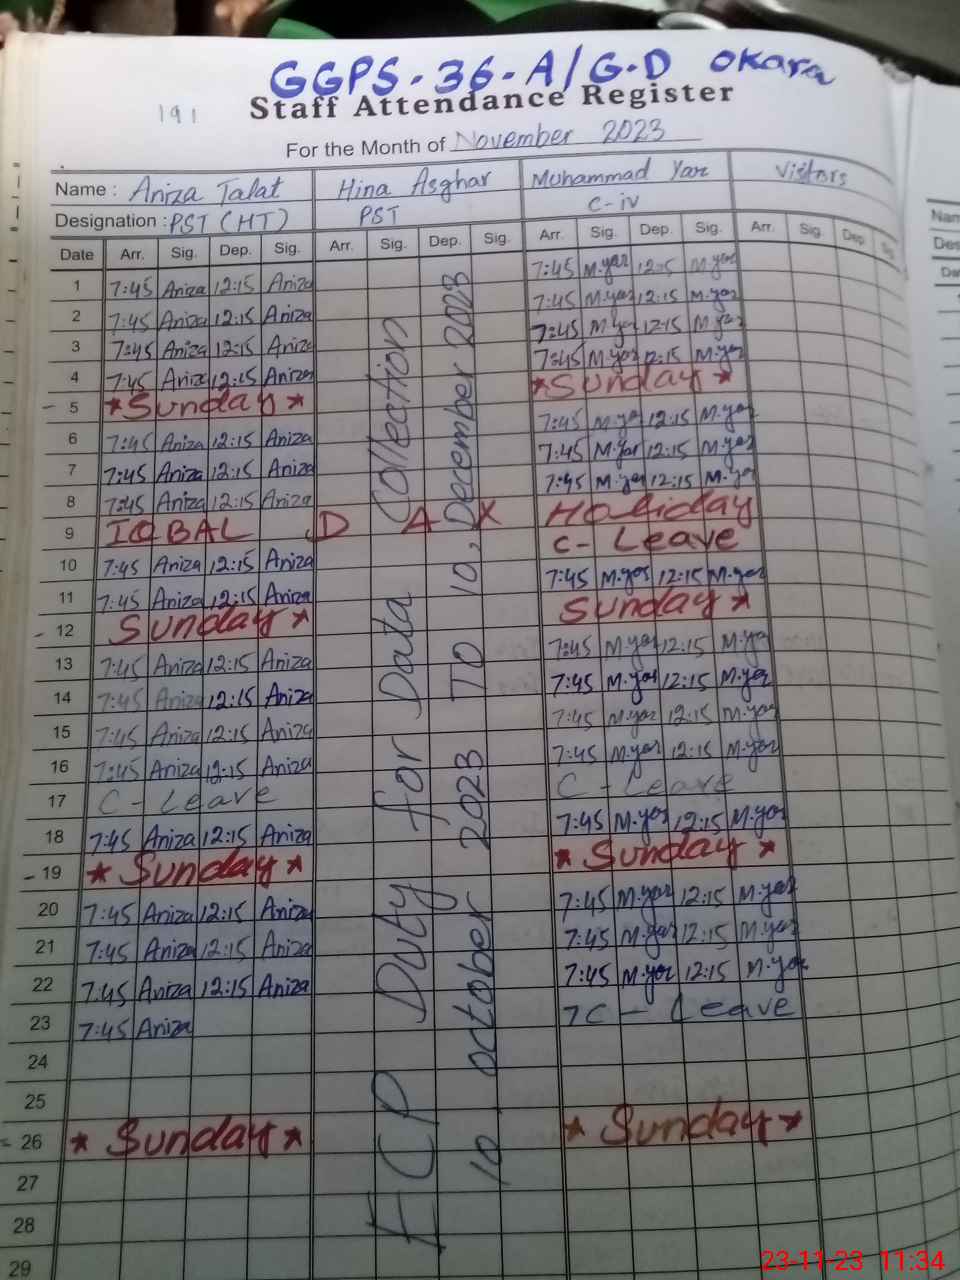 GGPS-36-A/G.D Okara
191
Staff Attendance Register
For the Month of November 2023
Name : Aniza Talat Hina Asghar Muhammad Yar Visitors
Designation : PST (HT) PST C-iv
Date Arr. Sig. Dep. Sig. Arr. Sig. Dep. Sig. Arr. Sig. Dep. Sig. Arr. Sig. Dep. Sig.
1 7:45 Aniza 12:15 Aniza 7:45 M.yar 12:15 M.yar
2 7:45 Aniza 12:15 Aniza 7:45 M.yar 12:15 M.yar
3 7:45 Aniza 12:15 Aniza 7:45 M.yar 12:15 M.yar
4 7:45 Aniza 12:15 Aniza 7:45 M.yar 12:15 M.yar
5 *Sunday* *Sunday*
6 7:45 Aniza 12:15 Aniza 7:45 M.yar 12:15 M.yar
7 7:45 Aniza 12:15 Aniza 7:45 M.yar 12:15 M.yar
8 7:45 Aniza 12:15 Aniza 7:45 M.yar 12:15 M.yar
9 IQBAL D A Y Holiday
10 7:45 Aniza 12:15 Aniza C- Leave
11 7:45 Aniza 12:15 Aniza 7:45 M.yar 12:15 M.yar
12 Sunday* Sunday*
13 7:45 Aniza 12:15 Aniza 7:45 M.yar 12:15 M.yar
14 7:45 Aniza 12:15 Aniza 7:45 M.yar 12:15 M.yar
15 7:45 Aniza 12:15 Aniza 7:45 M.yar 12:15 M.yar
16 7:45 Aniza 12:15 Aniza 7:45 M.yar 12:15 M.yar
17 C- Leave C- Leave
18 7:45 Aniza 12:15 Aniza 7:45 M.yar 12:15 M.yar
19 * Sunday * * Sunday *
20 7:45 Aniza 12:15 Aniza 7:45 M.yar 12:15 M.yar
21 7:45 Aniza 12:15 Aniza 7:45 M.yar 12:15 M.yar
22 7:45 Aniza 12:15 Aniza 7:45 M.yar 12:15 M.yar
23 7:45 Aniza 7 C - Leave
24
25
26 * Sunday * * Sunday *
27
28
29
FCP Duty for Data Collection
10 October 2023 TO 10, December 2023
Nam
Des
Da
23-11-23 11:34